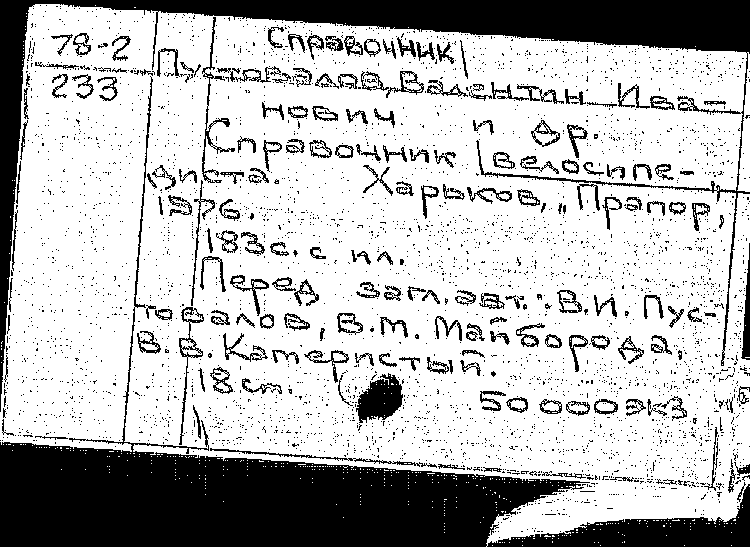 Справочник
78-2
233
Пустовалов, Валентин Ива-
нович и др.
Справочник велосипе-
диста. Харьков, „Прапор",
1976.
183с. с ил.
Перед загл. авт.: В.И. Пус-
товалов, В.М. Майборода,
В.В. Катеристый.
18 cm. 50 000 экз.